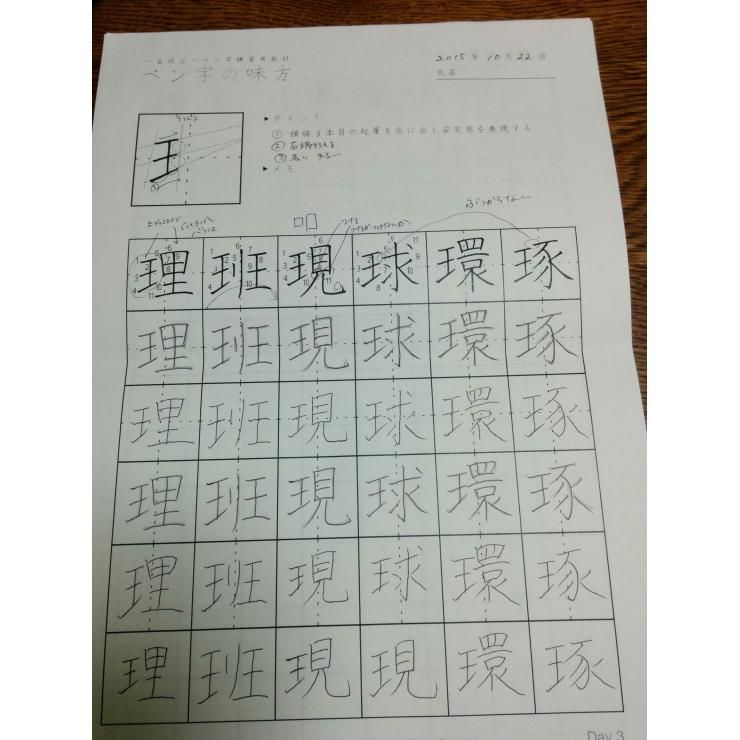 一生役立つペン字練習用教材
ペン字の味方
2015年10月22日
氏名
▶ポイント
① 横線3本目の起筆を左に出し安定感を表現する。
② 右端そろえる
▶メモ
ぶつからない
理 班 現 球 環 琢
理 班 現 球 環 琢
理 班 現 球 環 琢
理 班 現 球 環 琢
理 班 現 球 環 琢
理 班 現 現 環 琢
Day 3